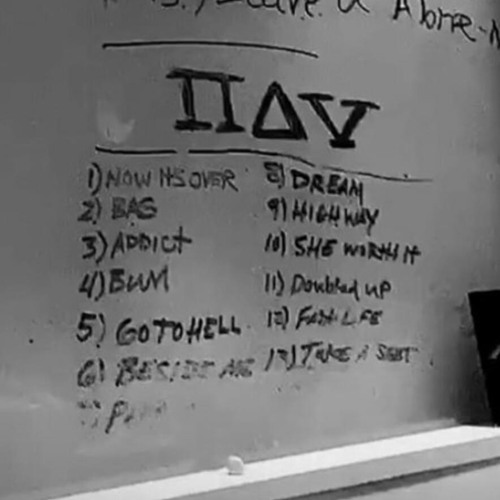 Leave a
ΠΔV
1) NOW ITS OVER
2) BAG
3) ADDICT
4) BUM
5) GO TO HELL
6) BESIDE ME
8) DREAM
9) HIGHWAY
10) SHE WORTH IT
11) Doubled up
12) FAST LIFE
13) TAKE A SEAT